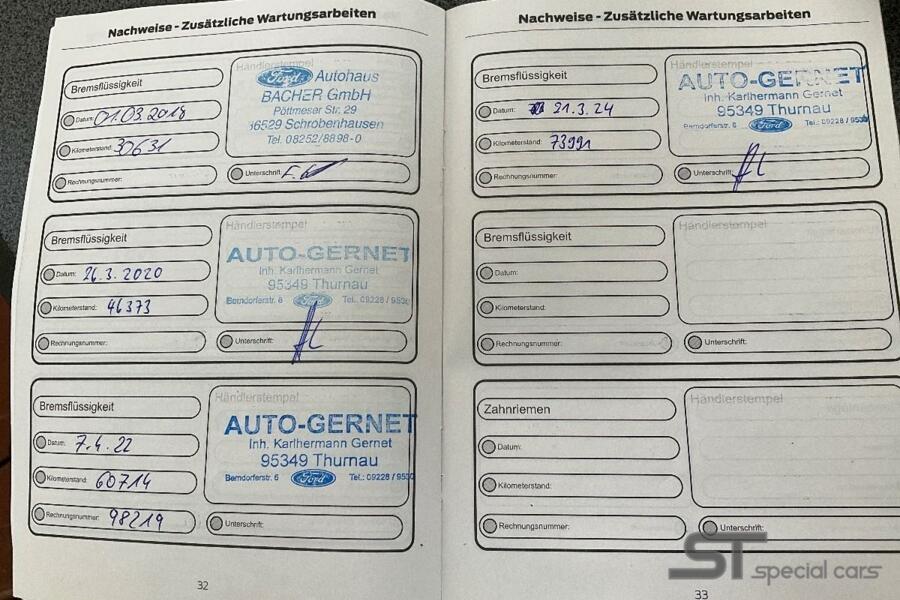 Nachweise - Zusätzliche Wartungsarbeiten
Bremsflüssigkeit
Datum: 01.03.2018
Kilometerstand: 30631
Rechnungsnummer:
Händlerstempel
Ford Autohaus
BACHER GmbH
Pöttmeser Str. 29
86529 Schrobenhausen
Tel. 08252/8898-0
Unterschrift:
Bremsflüssigkeit
Datum: 26.3.2020
Kilometerstand: 46373
Rechnungsnummer:
Händlerstempel
AUTO-GERNET
Inh. Karlhermann Gernet
95349 Thurnau
Berndorferstr. 6 Ford Tel.: 09228 / 9530
Unterschrift:
Bremsflüssigkeit
Datum: 7.4.22
Kilometerstand: 60714
Rechnungsnummer: 98219
Händlerstempel
AUTO-GERNET
Inh. Karlhermann Gernet
95349 Thurnau
Berndorferstr. 6 Ford Tel.: 09228 / 9530
Unterschrift:
32
Nachweise - Zusätzliche Wartungsarbeiten
Bremsflüssigkeit
Datum: 21.3.24
Kilometerstand: 73991
Rechnungsnummer:
Händlerstempel
AUTO-GERNET
Inh. Karlhermann Gernet
95349 Thurnau
Berndorferstr. 6 Ford Tel.: 09228 / 9530
Unterschrift:
Bremsflüssigkeit
Datum:
Kilometerstand:
Rechnungsnummer:
Händlerstempel
Unterschrift:
Zahnriemen
Datum:
Kilometerstand:
Rechnungsnummer:
Händlerstempel
Unterschrift:
33
ST special cars